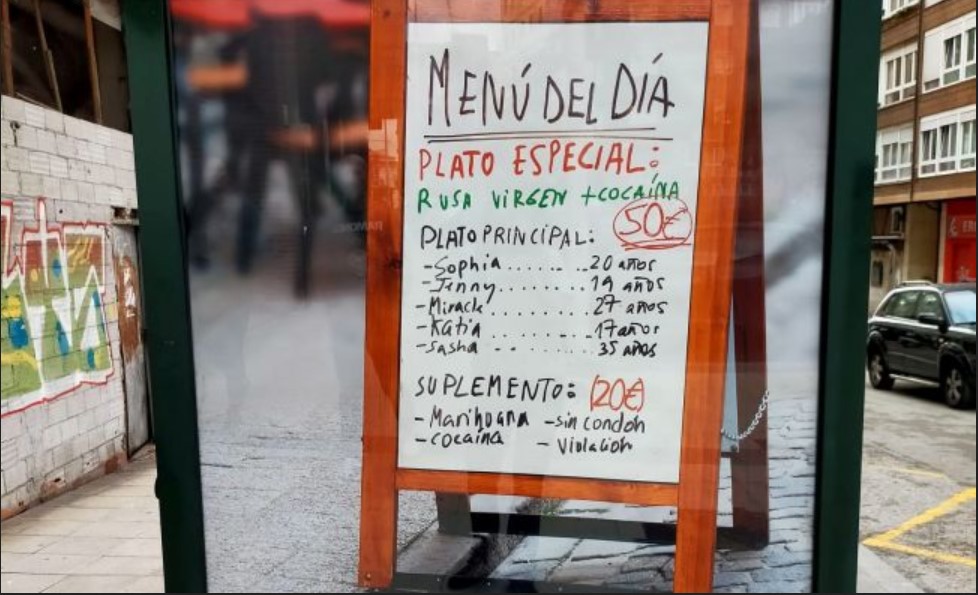 MENÚ DEL DÍA
PLATO ESPECIAL:
RUSA VIRGEN + COCAÍNA
50€
PLATO PRINCIPAL:
-Sophia........20 años
-Jenny.........19 años
-Miracle.........27 años
-Katia.........17 años
-Sasha.........35 años
SUPLEMENTO: (20€)
-Marihuana -sin condon
-cocaína -Violación